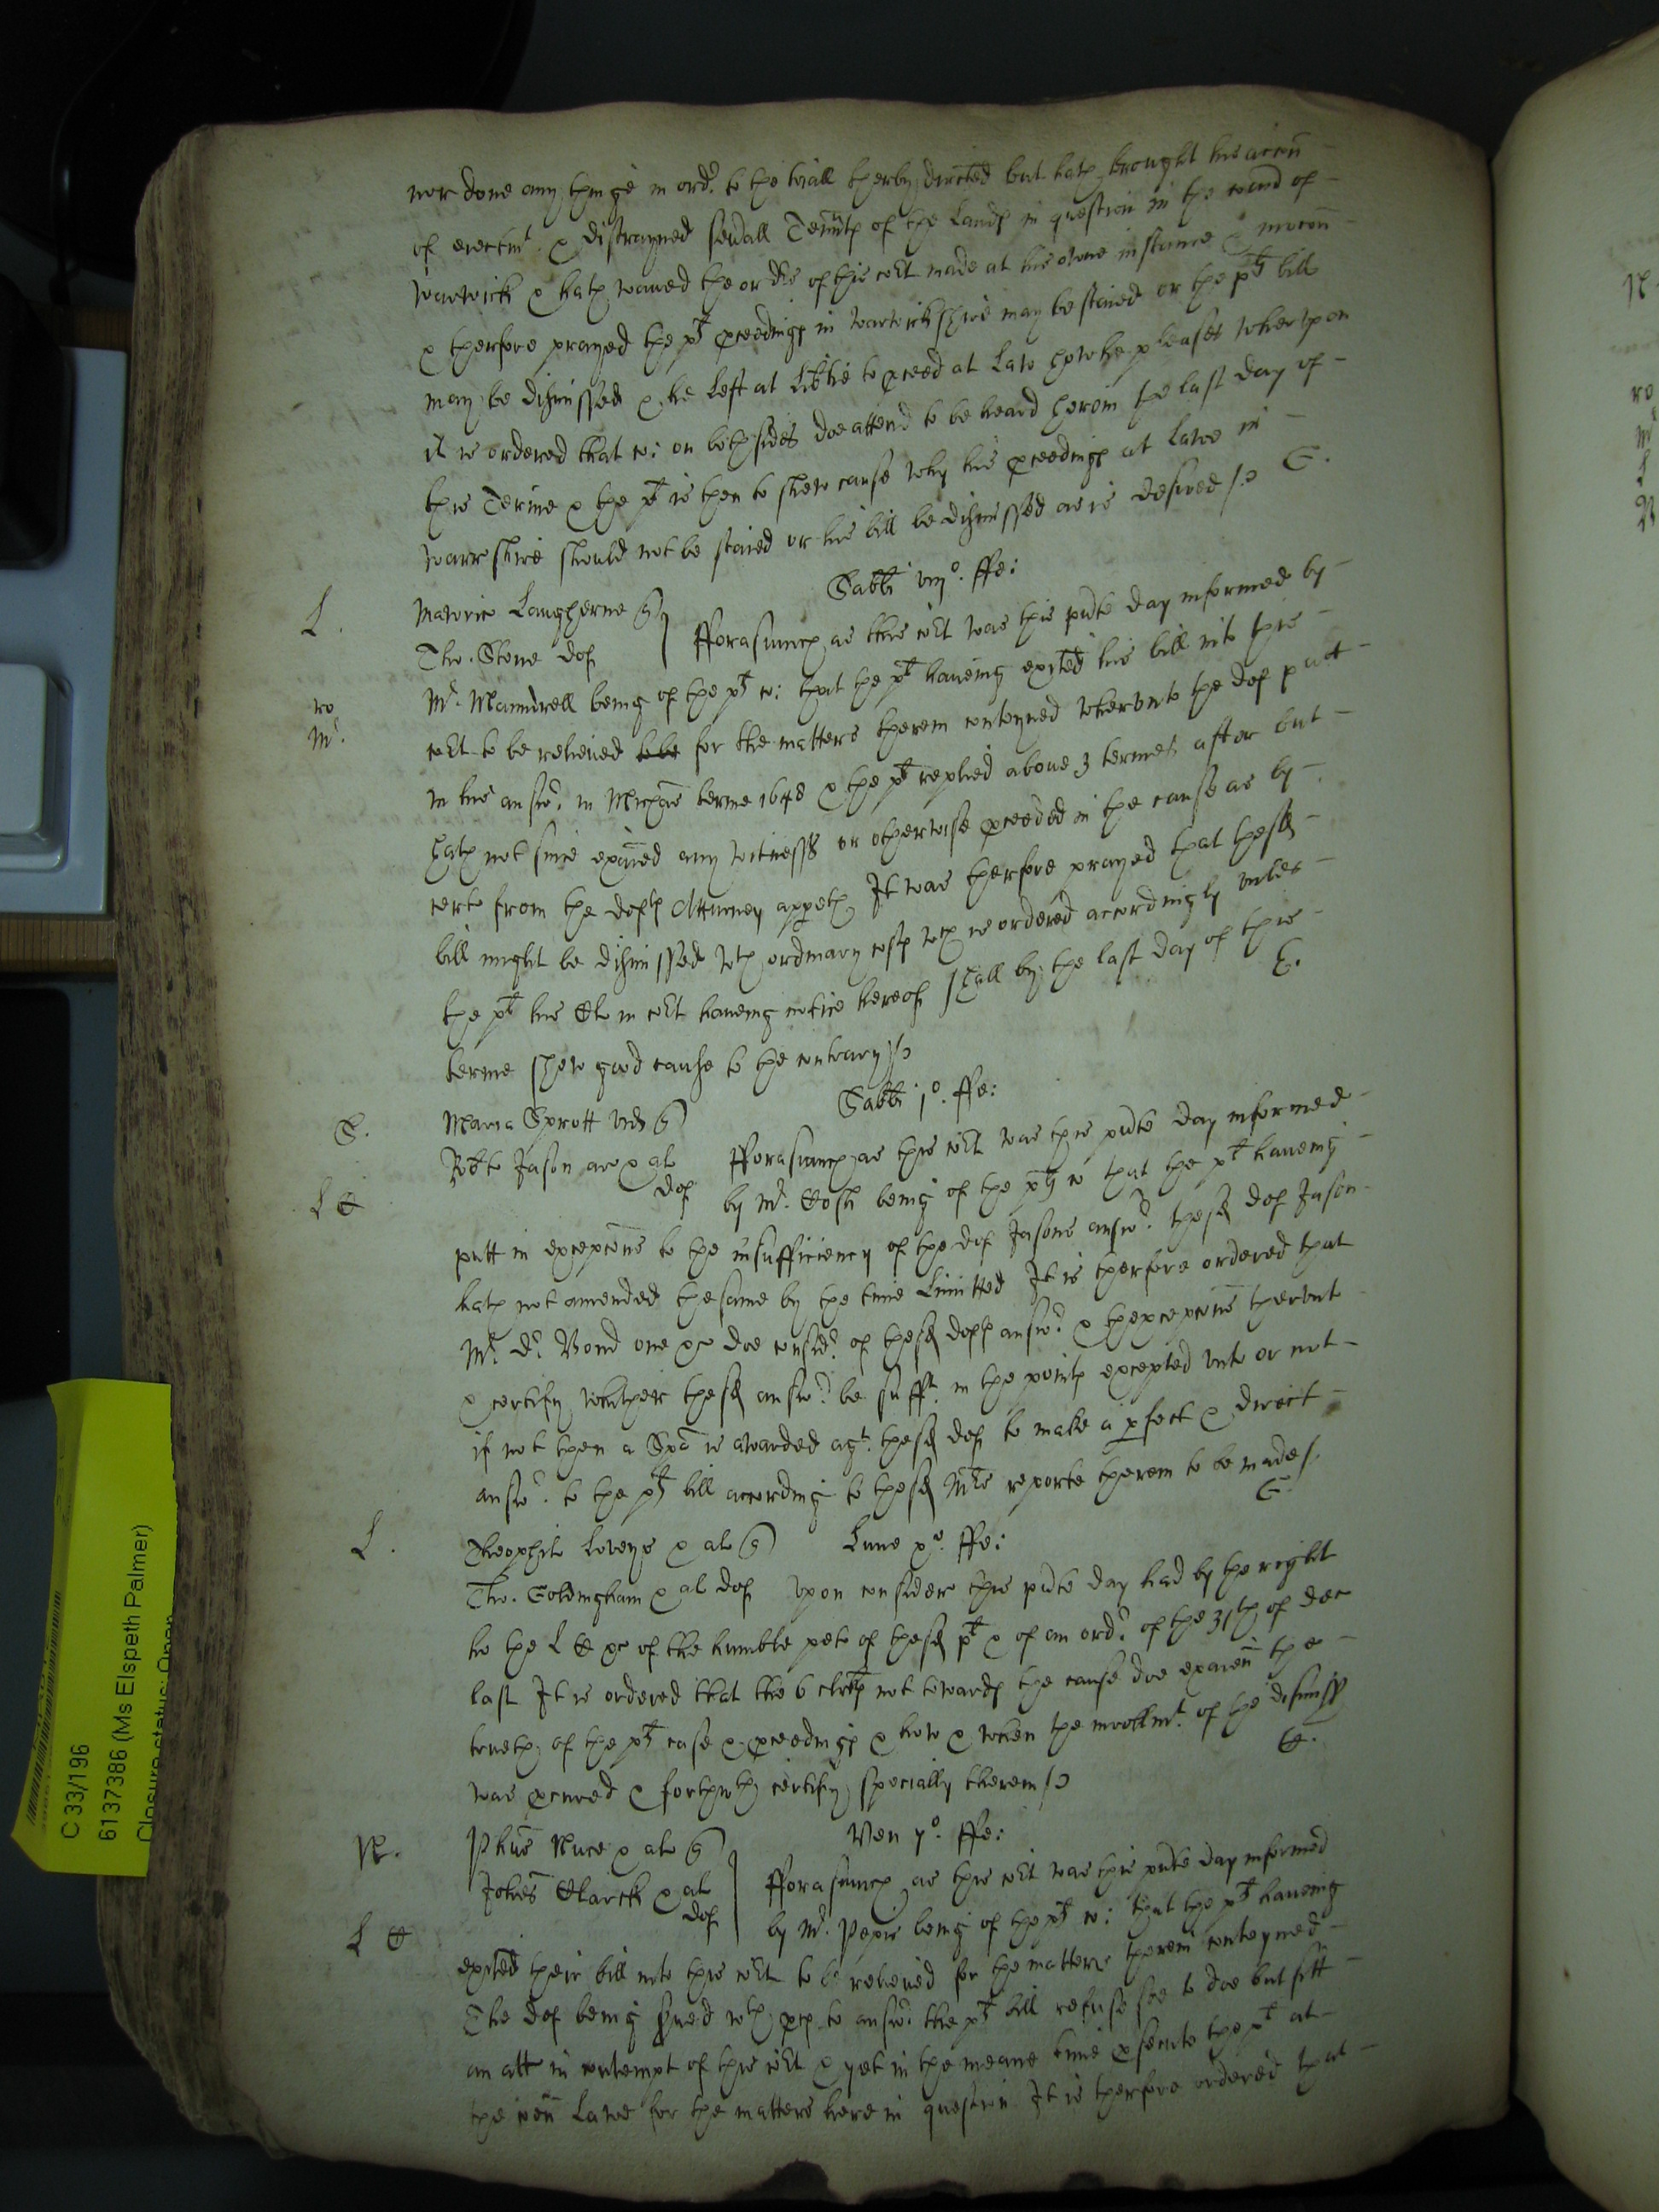 nor done any thinge in ordr to the triall therby directed but hath brought his accon
of eiectmt & distrayned seuall Tennts of the Lands in question in the County of
Warwick & hath waued the ordrs of this Cort made at his owne instance & mocon
& therfore prayed the plts pceedings in Warwickshire may be staied or the plts bill
may be dismissed & he left at libtie to pceed at Law how he pleases wherupon
it is ordered that co: on both sides doe attend to be heard herein the last day of
this Terme & the plt is then to shew cause why his pceedings at Lawe in
Warr shire should not be staied or his bill be dismissed as is desired /
G.
Sabbti viijo. ffe:
L.
Mawric Laugherne
Tho. Stone def
fforasmuch as this Cort was this pnte day informed by
ro
Mr.
Mr. Maundrell being of the plts co: that the plt haueing exited his bill into this
Cort to be releiued to be for the matters therein conteyned whervnto the def putt
in his answr. in Michas terme 1648 & the plt replied aboue 3 termes after but
hath not since exaied any witnesss or otherwise pceeded in the cause as by
certe from the defts Atturney appeth It was therfore prayed that these
bill might be dismissed wth ordinary costs wch is ordered accordingly vnles
the plt his Clo in Cort haueing notice hereof shall by the last day of this
terme shew good cause to the contrary /
E.
Sabbti jo. ffe:
S.
Maria Sprott vid
Robte Jason ar & al
def
fforasmuch as this Cort was this pnte day informed
L C
by Mr. Cosh being of the plts co that the plt haueing
putt in excepcons to the insufficiency of the def Jasons answr. these def Jason
hath not amended the same by the time limitted It is therfore ordered that
Mr. Dr. Bond one &c doe considr. of these defts answr & thexcepcons thervnto
& certify whither these answr. be sufft. in the points excepted vnto or not
if not then a Spa is awarded agt. these def to make a pfect & direct
answr. to the plts bill according to these Mrs reporte therein to be made /
G
L.
Theophil Loveys & al
Lune xo. ffe:
Tho. Goldingham & al def
Vpon consider this pnte day had by the right
ho the L C &c of the humble peto of these plt & of an ordr. of the 31th of Dec
last It is ordered that the 6 clerkes not towards the cause doe exaien the
trueth of the plts case & pceedings & how & when the inrollmt. of the dismiss
was pcured & forthwth certify specially therein /
C.
N.
Phus Nuce & al
Johes Clarck & al
def
Ven 7o. ffe:
fforasmuch as this Cort was this pnte day informed
L C
by Mr. Pepis being of the plts co: that the plts haueing
exited their bill into this Cort to be releiued for the matters therein conteyned
The def being srued wth pces to answr. the plts bill refuse soe to doe but sitt
an att in contempt of this Cort & yet in the meane time psecute the plt at
the Comon Lawe for the matters here in question It is therfore ordered that
C 33/196
6137386 (Ms Elspeth Palmer)
Closure status: Open